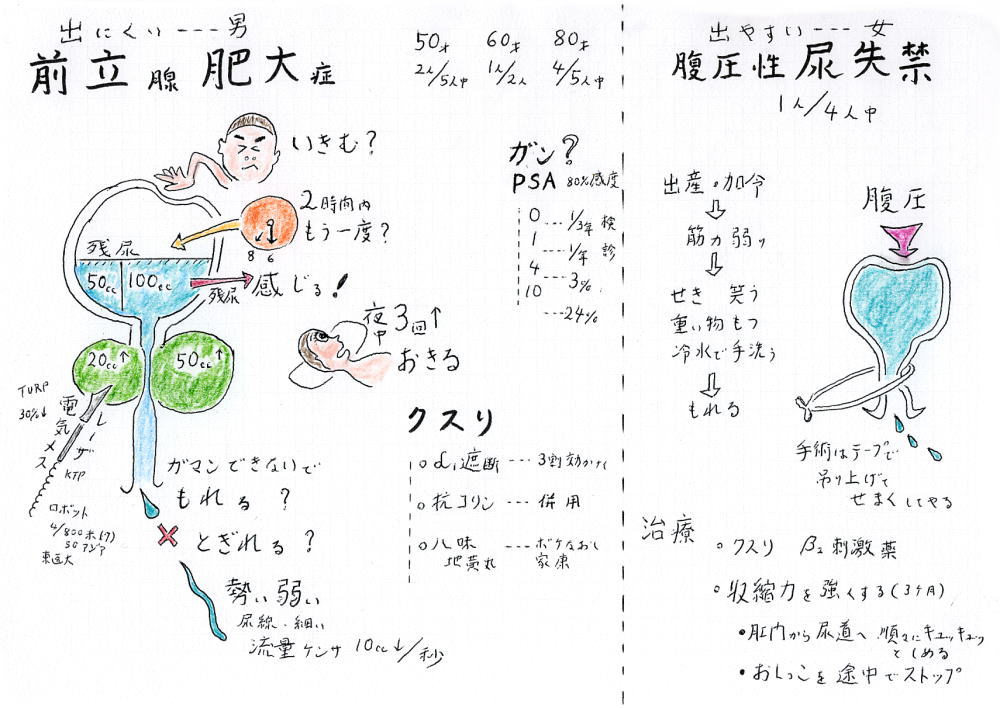 出にくい---男
前立腺肥大症
50才 60才 80才
2人/5人中 1人/2人 4/5人中
いきむ?
2時間内
もう一度?
8 6
残尿
50cc 100cc
残尿 感じる!
夜中 3回↑
おきる
20cc↑ 50cc↑
TURP
30%↓
電気メス
レーザ
KTP
ロボット
4/800ホ(ア)
50アジア
東医大
ガマンできないで
もれる?
とぎれる?
勢い弱い
尿線・細い
流量ケンサ 10cc↓/秒
ガン?
PSA 80%感度
0 --- 1/3年 検
1 --- 1/年 診
4 --- 3%
10
--- 24%
クスリ
○α₁遮断 --- 3割効かず
○抗コリン --- 併用
○八味地黄丸 --- ボケなおし
家康
出やすい---女
腹圧性尿失禁
1人/4人中
出産・加令
⇩
筋力弱り
⇩
せき 笑う
重い物もつ
冷水で手洗う
⇩
もれる
腹圧
手術はテープで
吊り上げて
せまくしてやる
治療
○クスリ β₂刺激薬
○収縮力を強くする(3ヶ月)
•肛門から尿道へ 順々にキュッキュッ
としめる
•おしっこを途中でストップ